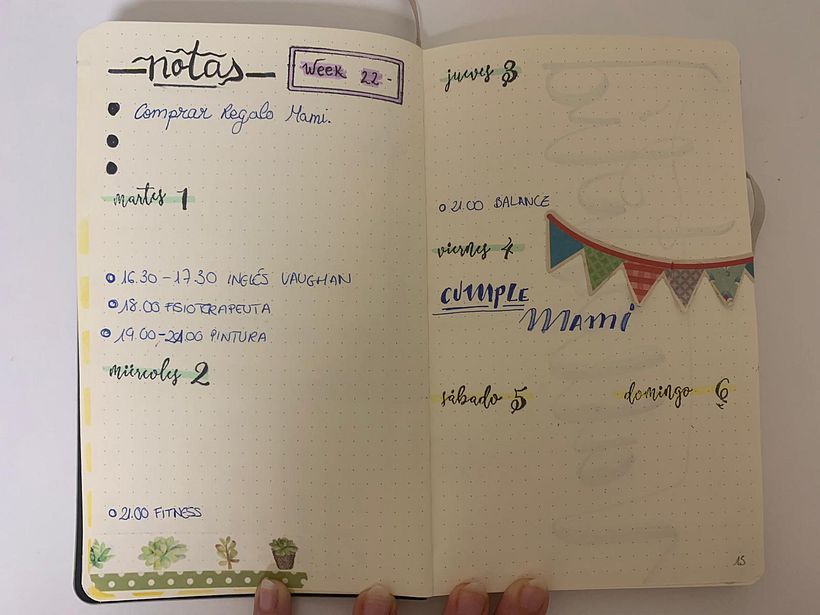 notas
Week 22-
Comprar Regalo Mami.
martes 1
16.30 - 17.30 INGLÉS VAUGHAN
18.00 FISIOTERAPEUTA
PINTURA
miércoles 2
21.00 FITNESS
jueves 3
21.00 BALANCE
viernes 4
CUMPLE
Mami
sábado 5
domingo 6
15